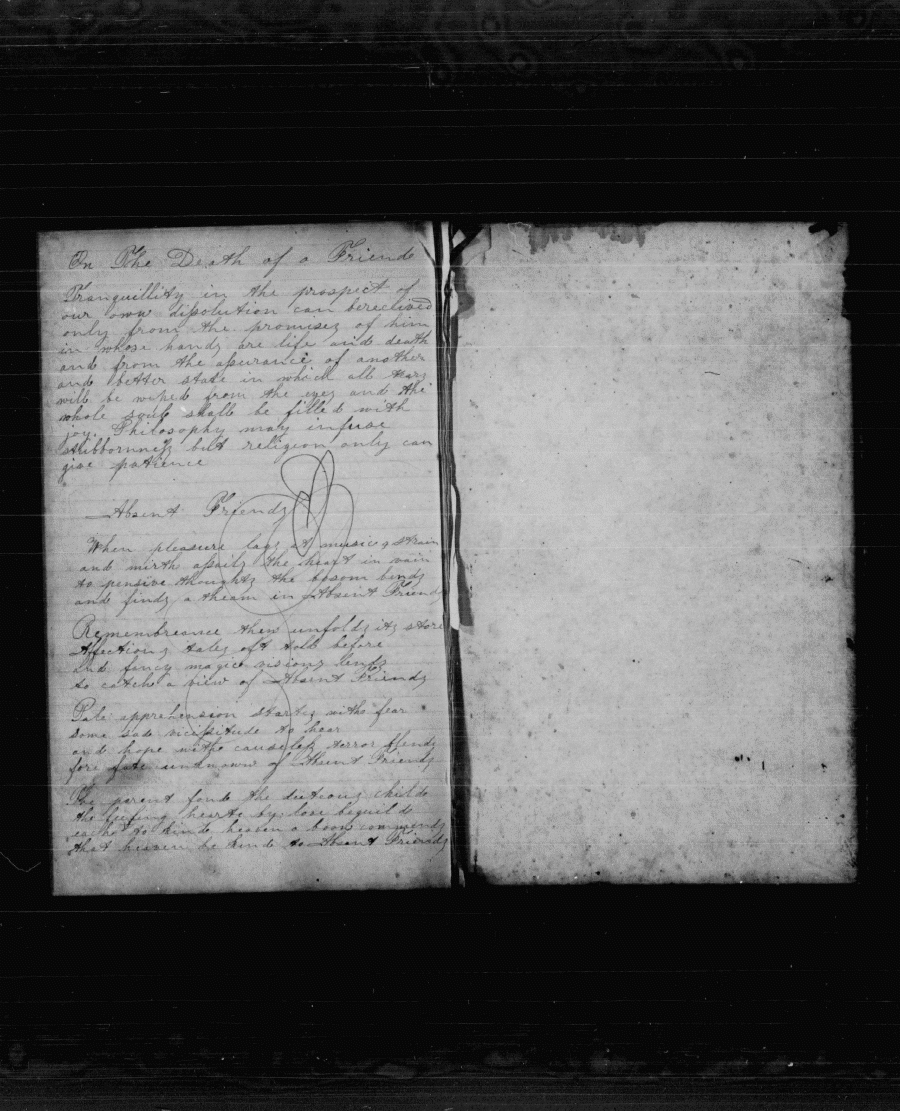 On The Death of a Friend
Tranquillity in the prospect of
our own disolution can bereclived
only from the promises of him
in whose hands are life and death
and from the assurance of another
and better state in which all tears
will be wiped from the eyes and the
whole soul shall be filled with
joy. Philosophy may infuse
stibbornness but religion only can
give patience
Absent Friends
When pleasure lags at musics strain
and mirth assails the heart in vain
to pensive thoughts the bosom bends
and finds a theam in Absent Friends
Remembreance then unfolds its store
Affections tales oft told before
and fincy magic visions lends
to catch a view of Absent Friends
Pale apprehension startes with fear
some sad vicissitude to hear
and hope with causeless terror blends
fore fate unknown of Absent Friends
The parent fond the child
the hearts by love beguild
each to kind heaven a boon commends
that heaven be kind to Absent Friends